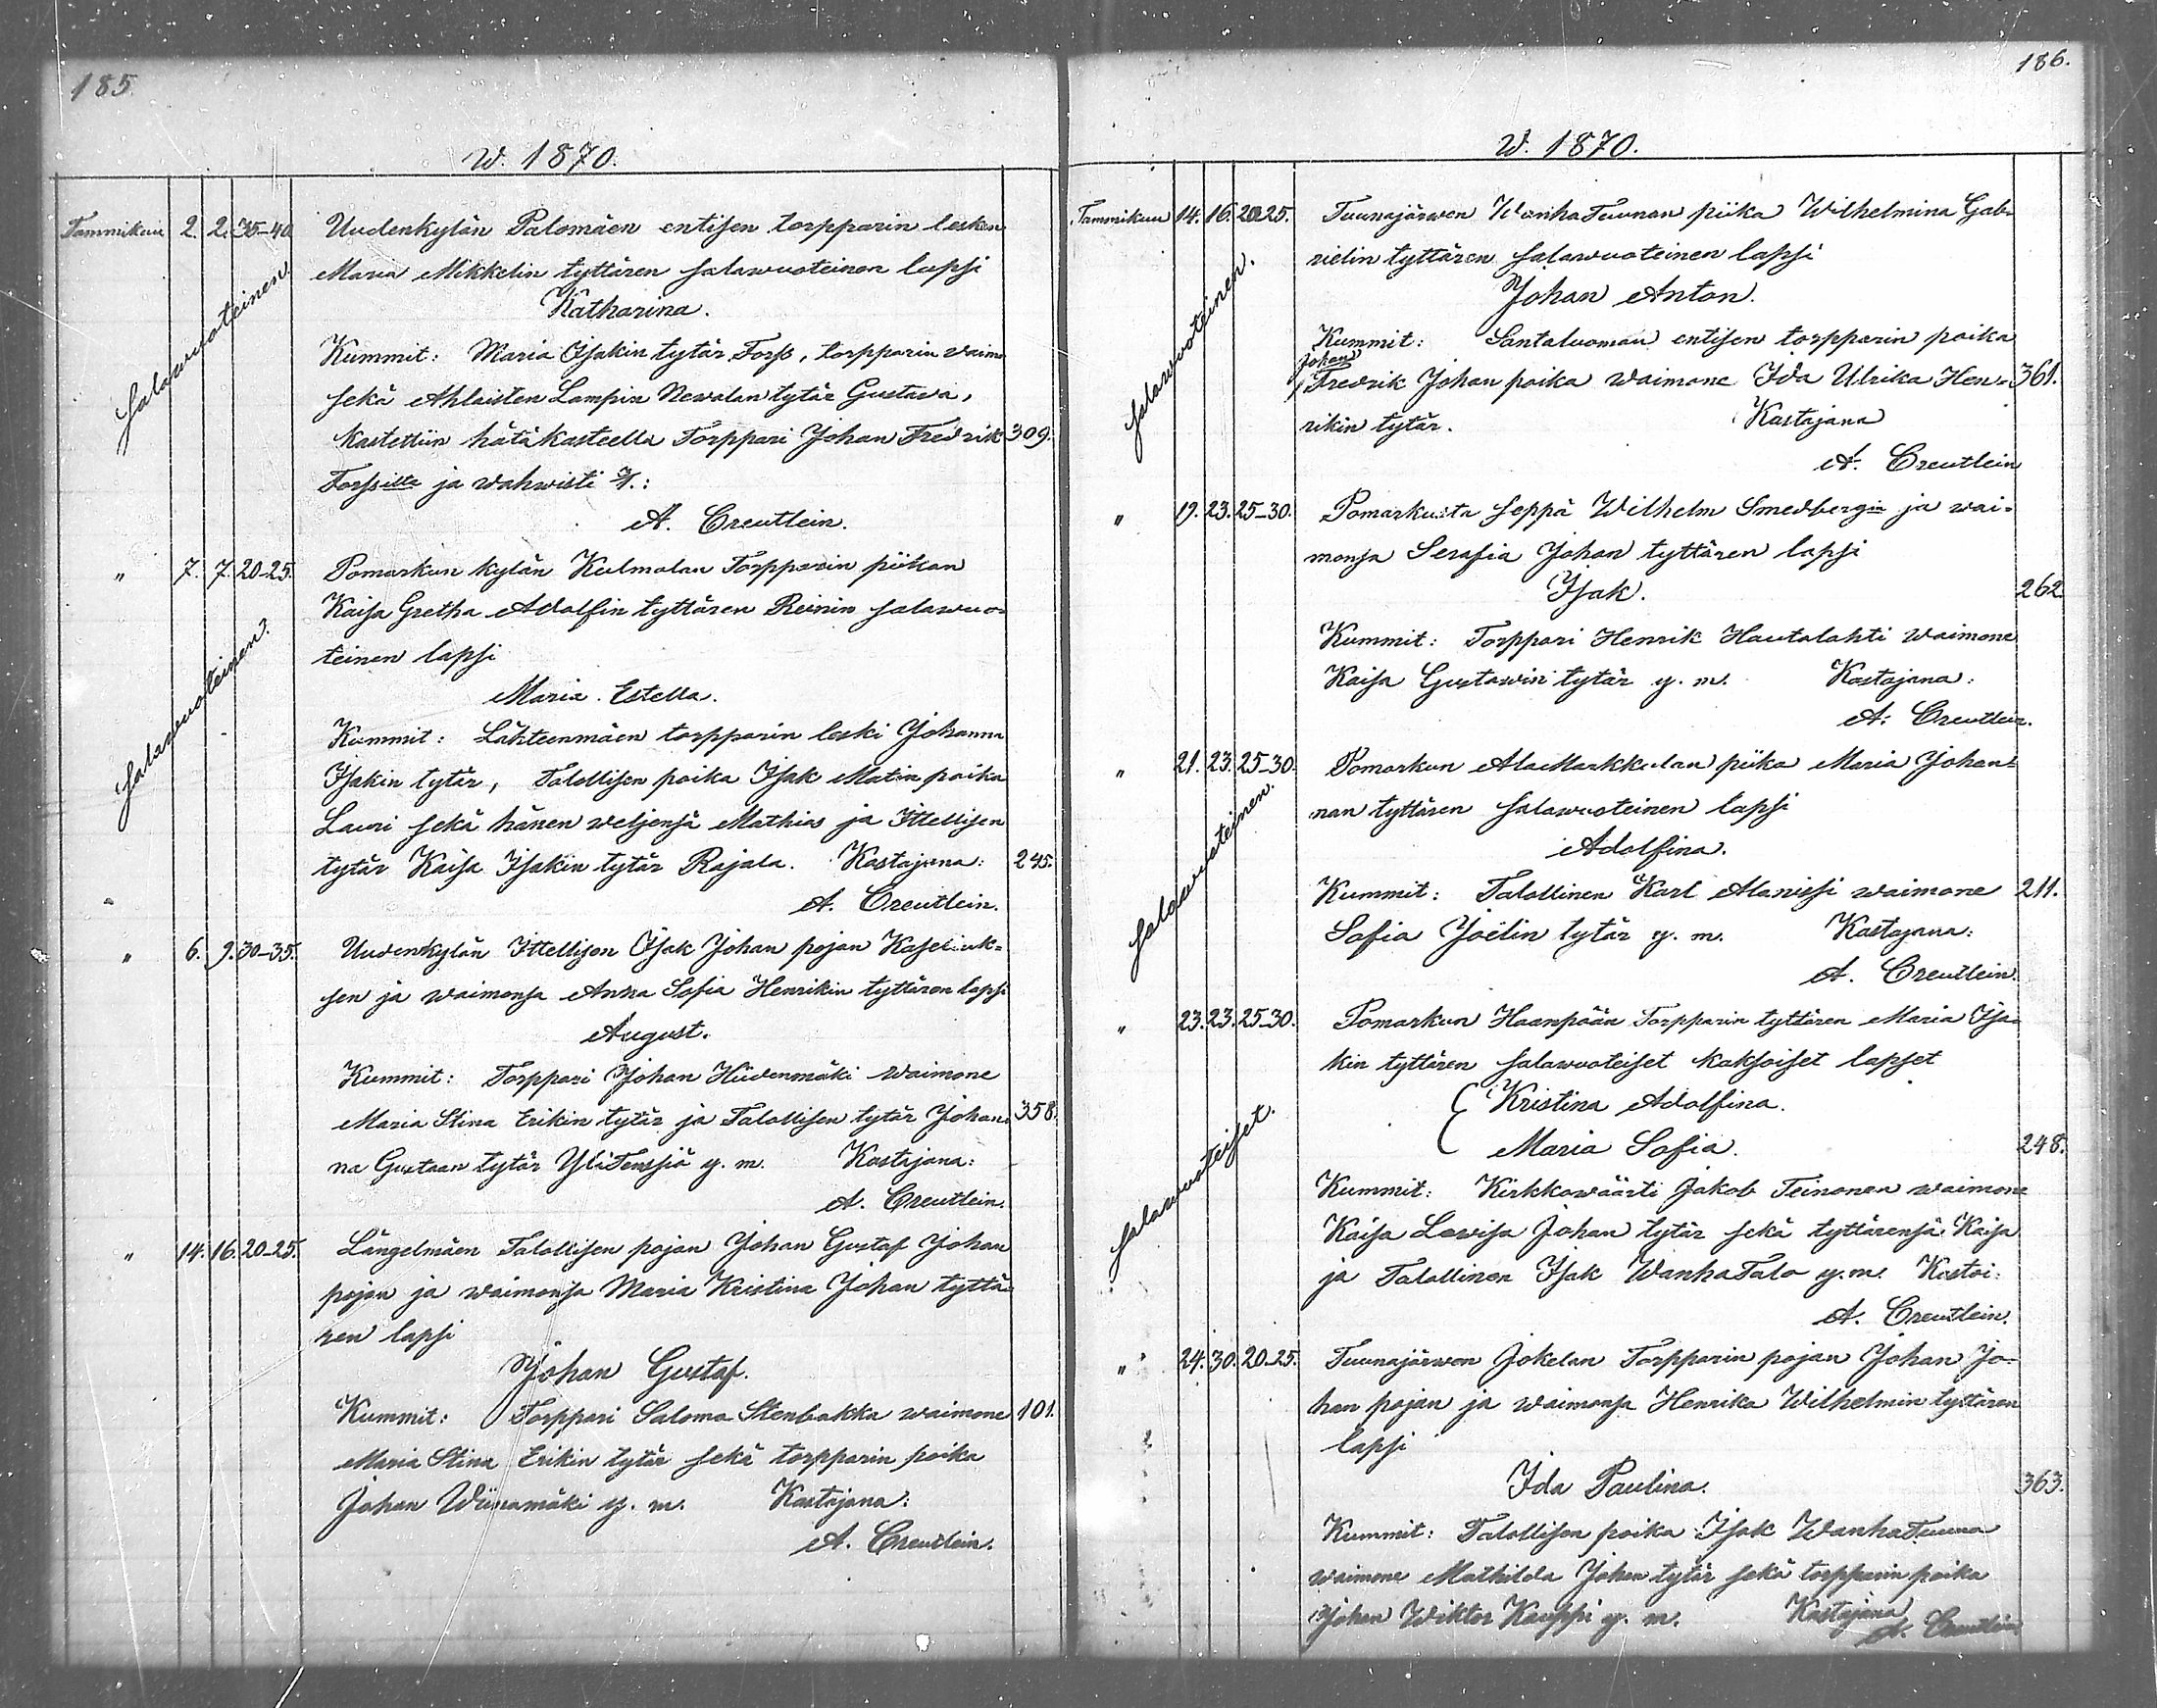 185
W. 1870.
Tammikuu 2. 2. 35-40 Uudenkylän Palomäen entisen torpparin lesken
Maria Mikkelin tyttären salawuoteinen lapsi
Salawuoteinen.
Katharina.
Kummit: Maria Isakin tytär Forss, torpparin vaimo
sekä Ahlaisten Lampin Newalan tytär Gustava,
kastettiin hätäkasteella Torppari Johan Fredrik 309.
Forssilla ja wahwisti
A. Creutlein.
" 7. 7. 20-25. Pomarkun kylän Kulmalan Torpparin piikan
Kaisa Gretha Adolfin tyttären Reinin salawuo-
teinen lapsi
Salawuoteinen.
Maria Estella.
Kummit: Lähteenmäen torpparin leski Johanna
Isakin tytär, Talollisen poika Isak Matin poika
Lauri sekä hänen weljensä Mathias ja Ittellisen
tytär Kaisa Isakin tytär Rajala. Kastajana: 245.
A. Creutlein.
" 6. 9. 30-35. Uudenkylän Ittellisen Isak Johan pojan
sen ja waimonsa Anna Sofia Henrikin tyttären lapsi
August.
Kummit: Torppari Johan Hiidenmäki waimone
Maria Stina Erikin tytär ja Talollisen tytär Johan- 358.
na Gustaan tytär YliTenssiä y. m. Kastajana:
A. Creutlein.
" 14. 16. 20-25. Längelmäen Talollisen pojan Johan Gustaf Johan
pojan ja waimonsa Maria Kristina Johan tyttä-
ren lapsi
Johan Gustaf.
Kummit: Torppari Saloma Stenbakka waimone 101.
Maria Stina Erikin tytär sekä torpparin poika
Johan Wiinamäki y. m. Kastajana:
A. Creutlein.
186.
W. 1870.
Tammikuu 14. 16. 20-25. Tuunajärwen WanhaTuunan piika Wilhelmina Gab-
rielin tyttären salawuoteinen lapsi
Salawuoteinen.
Johan Anton.
Kummit: Santaluoman entisen torpparin poika
Johan
Fredrik Johan poika waimone Ida Ulrika Hen- 361.
rikin tytär. Kastajana
A. Creutlein
" 19. 23. 25-30. Pomarkusta seppä Wilhelm Smedbergin ja wai-
monsa Serafia Johan tyttären lapsi
Isak. 262.
Kummit: Torppari Henrik Hautalahti waimone
Kaisa Gustawin tytär y. m. Kastajana:
A. Creutlein.
" 21. 23. 25-30. Pomarkun AlaMarkkulan piika Maria Johan-
nan tyttären salawuoteinen lapsi
Salawuoteinen.
Adolfina.
Kummit: Talollinen Karl Alanissi waimone 211.
Sofia Joëlin tytär y. m. Kastajana:
A. Creutlein.
" 23. 23. 25-30. Pomarkun Haanpään Torpparin tyttären Maria Isa-
kin tyttären salawuoteiset kaksoiset lapset
Salawuoteiset.
Kristina Adolfina.
Maria Sofia. 248.
Kummit: Kirkkowäärti Jakob Teinonen waimone
Kaisa Lowisa Johan tytär sekä tyttärensä Kaisa
ja Talollinen Isak WanhaTalo y. m. Kastoi:
A. Creutlein.
" 24. 30. 20-25. Tuunajärwen Jokelan Torpparin pojan Johan Jo-
han pojan ja waimonsa Henrika Wilhelmin tyttären
lapsi
Ida Paulina. 363.
Kummit: Talollisen poika Isak WanhaTuuna
waimone Mathilda Johan tytär sekä torpparin poika
Johan Wiktor Kauppi y. m. Kastajana
A. Creutlein